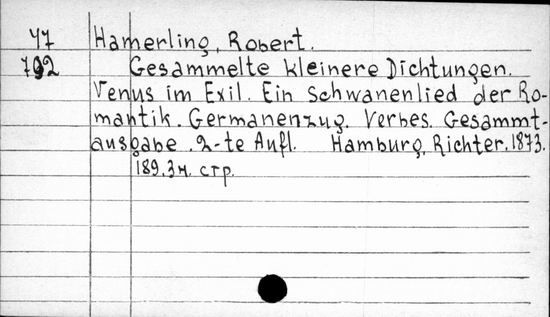 Ч7 Hamerling, Robert.
792 Gesammelte kleinere Dichtungen.
Venus im Exil. Ein Schwanenlied der Ro-
mantik. Germanenzug. Verbes. Gesammt-
ausgabe. 2-te Aufl. Hamburg, Richter, 1873.
189,3н. стр.